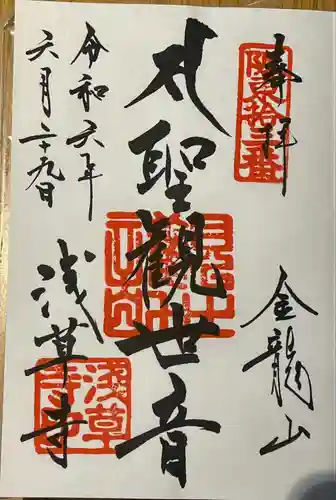 奉拝
金龍山
聖観世音
令和六年
六月二十九日
浅草寺
浅草寺